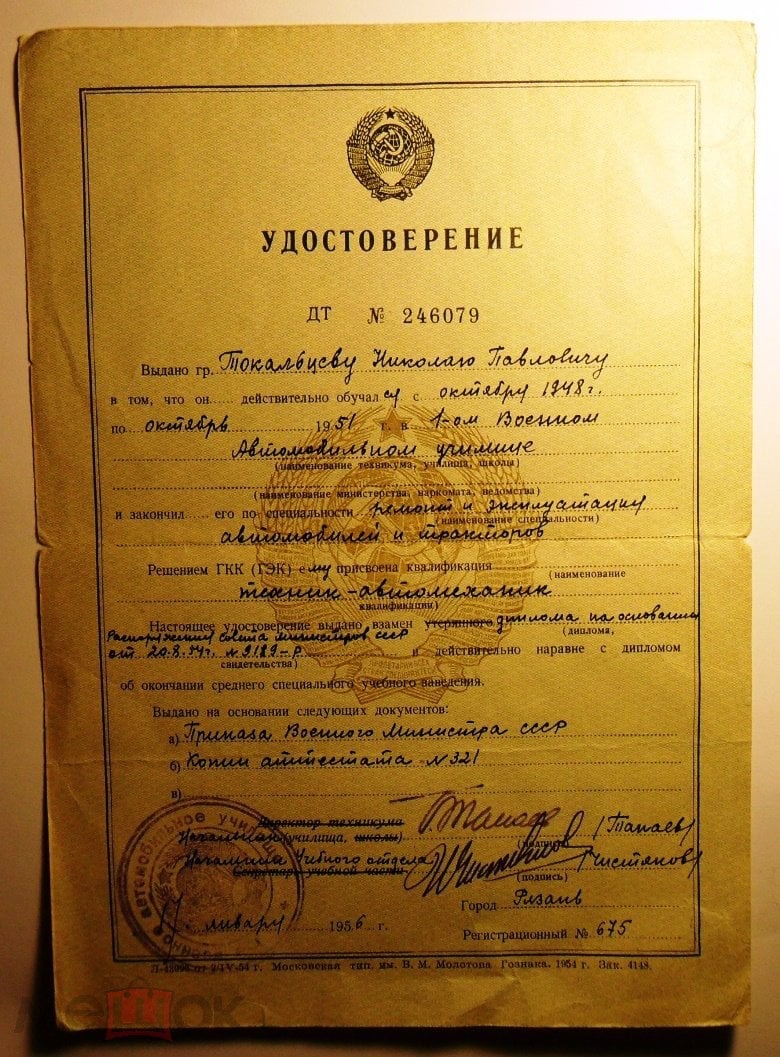 УДОСТОВЕРЕНИЕ
ДТ № 246079
Выдано гр. Токальцеву Николаю Павловичу
в том, что он действительно обучался с октября 1948 г.
по октябрь 1951 г. в 1-ом Военном
Автомобильном училище
(наименование техникума, училища, школы)
(наименование министерства, наркомата, ведомства)
и закончил его по специальности ремонт и эксплуатация
(наименование специальности)
автомобилей и тракторов
Решением ГКК (ГЭК) ему присвоена квалификация
(наименование
техник-автомеханик
квалификации)
Настоящее удостоверение выдано взамен утерянного диплома на основании
(диплома,
Распоряжения Совета Министров СССР
от 20.8.54г. №9189-р и действительно наравне с дипломом
свидетельства)
об окончании среднего специального учебного заведения.
Выдано на основании следующих документов:
а) Приказа Военного Министра СССР
б) Копии аттестата №321
в)
Директор техникума
Начальник (училища, школы) (Танаев)
(подпись)
Начальник Учебного отдела
Секретарь учебной части
(подпись)
Город Рязань
17 января 1956 г.
Регистрационный № 675
от 2/IV-54 г. Московская тип. им. В. М. Молотова Гознака. 1954 г. Зак. 4148.
мешок